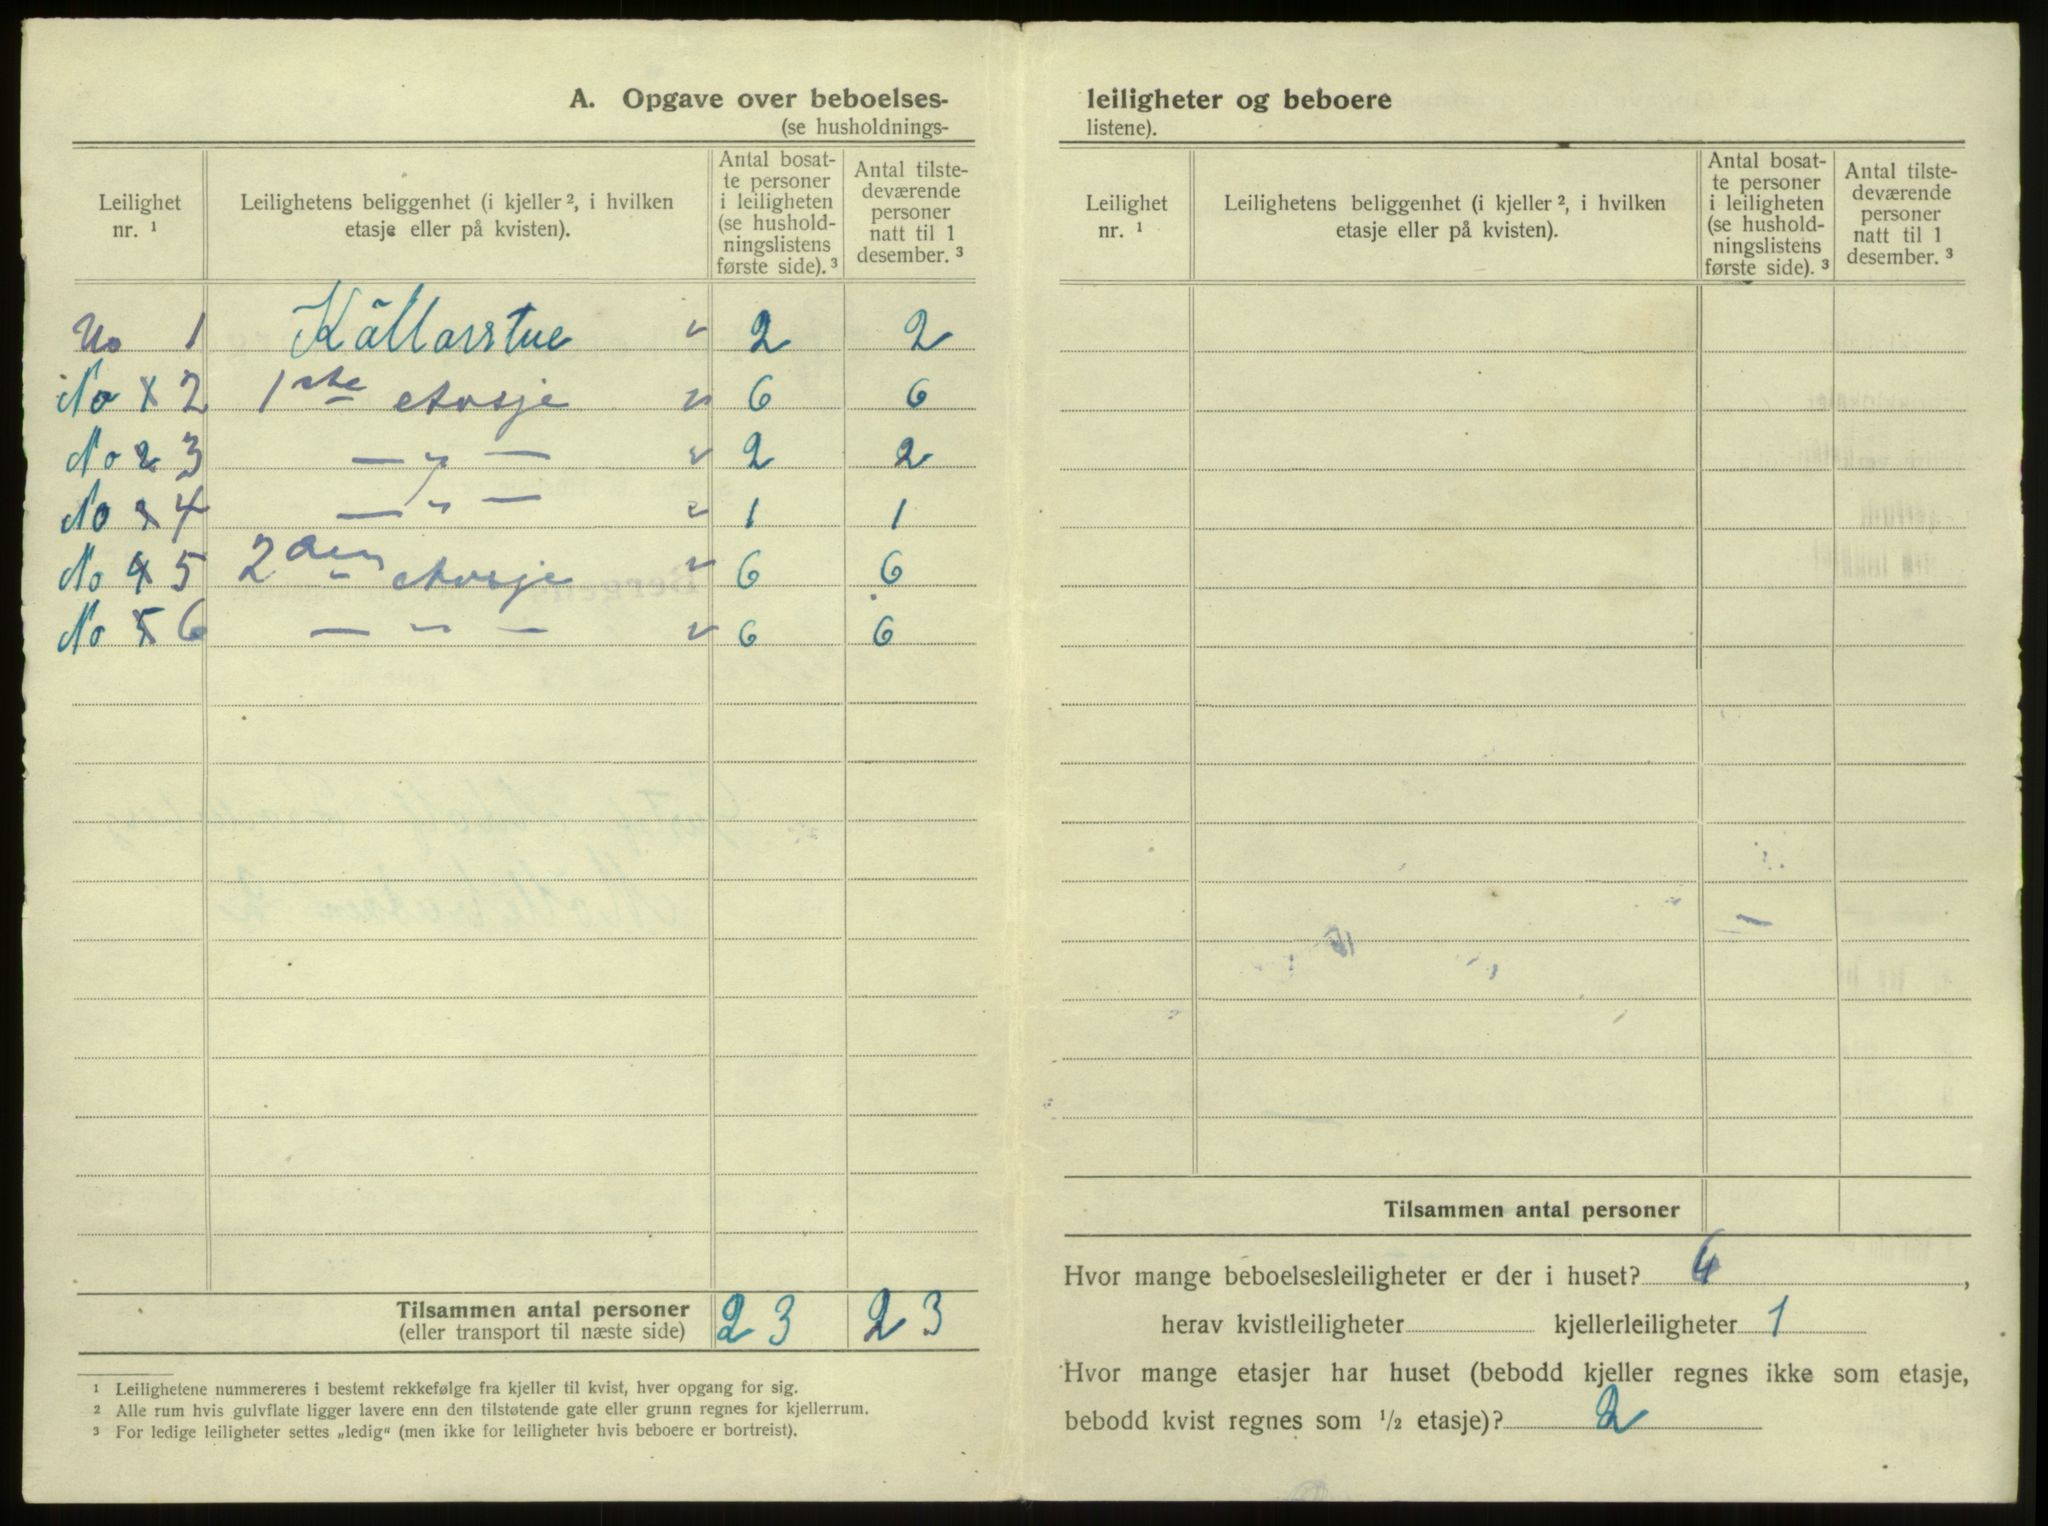 A. Opgave over beboelses-
(se husholdnings-
Leilighet nr. ¹
Leilighetens beliggenhet (i kjeller ², i hvilken etasje eller på kvisten).
Antal bosat-
te personer
i leiligheten
(se hushold-
ningslistens
første side). ³
Antal tilste-
deværende
personer
natt til 1
desember. ³
No 1 Källarstue " 2 2
No 1 2 1ste etasje " 6 6
No 2 3 — " — " 2 2
No 3 4 — " — " 1 1
No 4 5 2den etasje " 6 6
No 5 6 — " — " 6 6
Tilsammen antal personer 23 23
(eller transport til næste side)
¹ Leilighetene nummereres i bestemt rekkefølge fra kjeller til kvist, hver opgang for sig.
² Alle rum hvis gulvflate ligger lavere enn den tilstøtende gate eller grunn regnes for kjellerrum.
³ For ledige leiligheter settes „ledig" (men ikke for leiligheter hvis beboere er bortreist).
leiligheter og beboere
listene).
Leilighet nr. ¹
Leilighetens beliggenhet (i kjeller ², i hvilken etasje eller på kvisten).
Antal bosat-
te personer
i leiligheten
(se hushold-
ningslistens
første side). ³
Antal tilste-
deværende
personer
natt til 1
desember. ³
Tilsammen antal personer
Hvor mange beboelsesleiligheter er der i huset? 6,
herav kvistleiligheter kjellerleiligheter 1
Hvor mange etasjer har huset (bebodd kjeller regnes ikke som etasje,
bebodd kvist regnes som ½ etasje)? 2